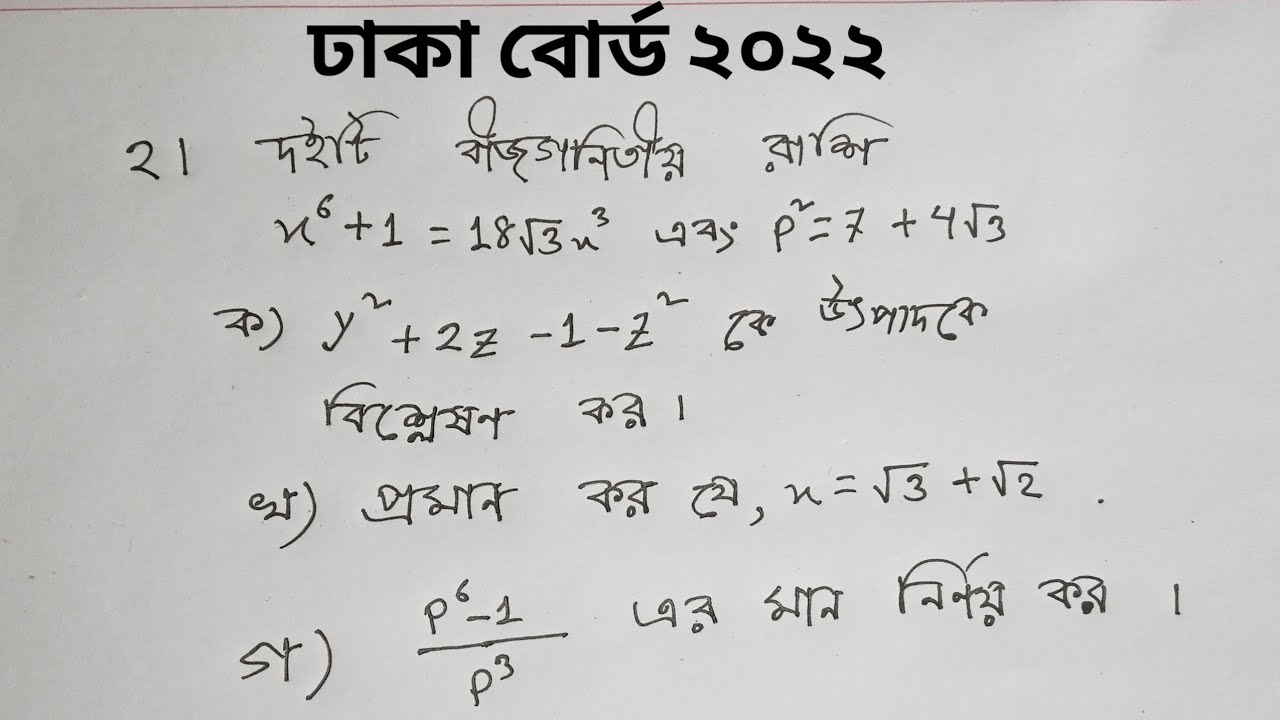 ঢাকা বোর্ড ২০২২
২। দইটি বীজগানিতীয় রাশি
x⁶ + 1 = 18√3x³ এবং p² = 7 + 4√3
ক) y² + 2z - 1 - z² কে উৎপাদকে
বিশ্লেষণ কর।
খ) প্রমান কর যে, x = √3 + √2 .
গ) (p⁶ - 1)/p³ এর মান নির্ণয় কর ।